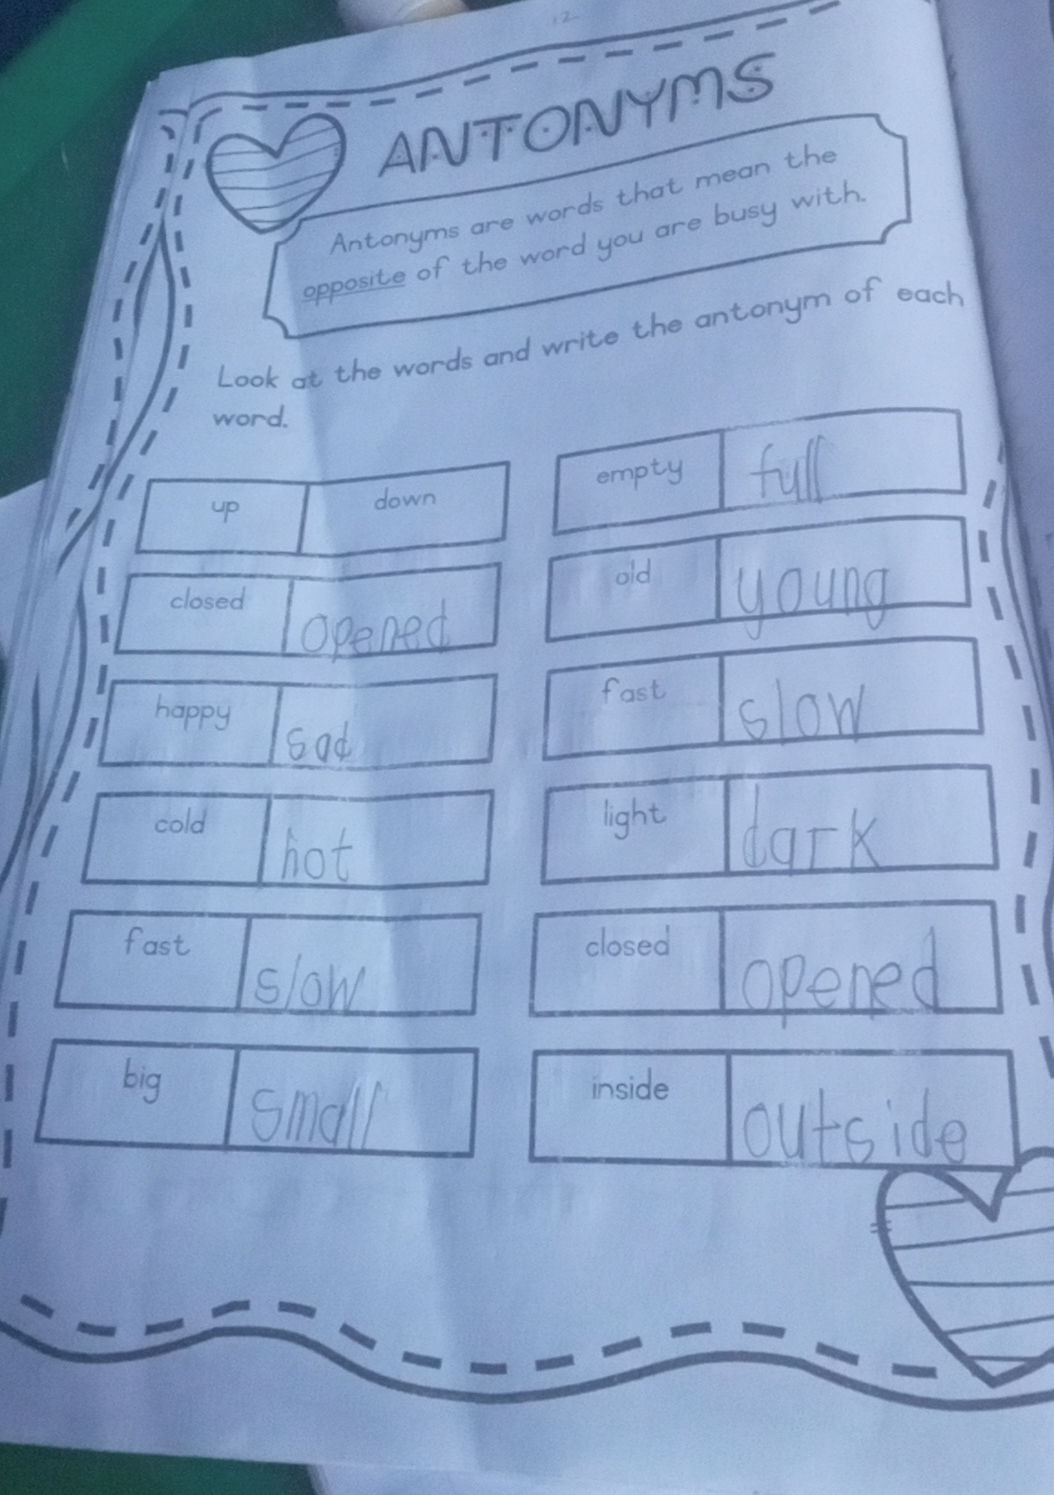 12
ANTONYMS
Antonyms are words that mean the
opposite of the word you are busy with.
Look at the words and write the antonym of each
word.
up down
empty full
closed opened
old young
happy sad
fast slow
cold hot
light dark
fast slow
closed opened
big small
inside outside